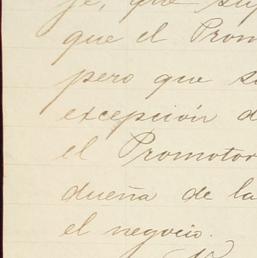 je, que sup
que el Prom
pero que s
excepción d
el Promotor
dueña de la
el negocio.